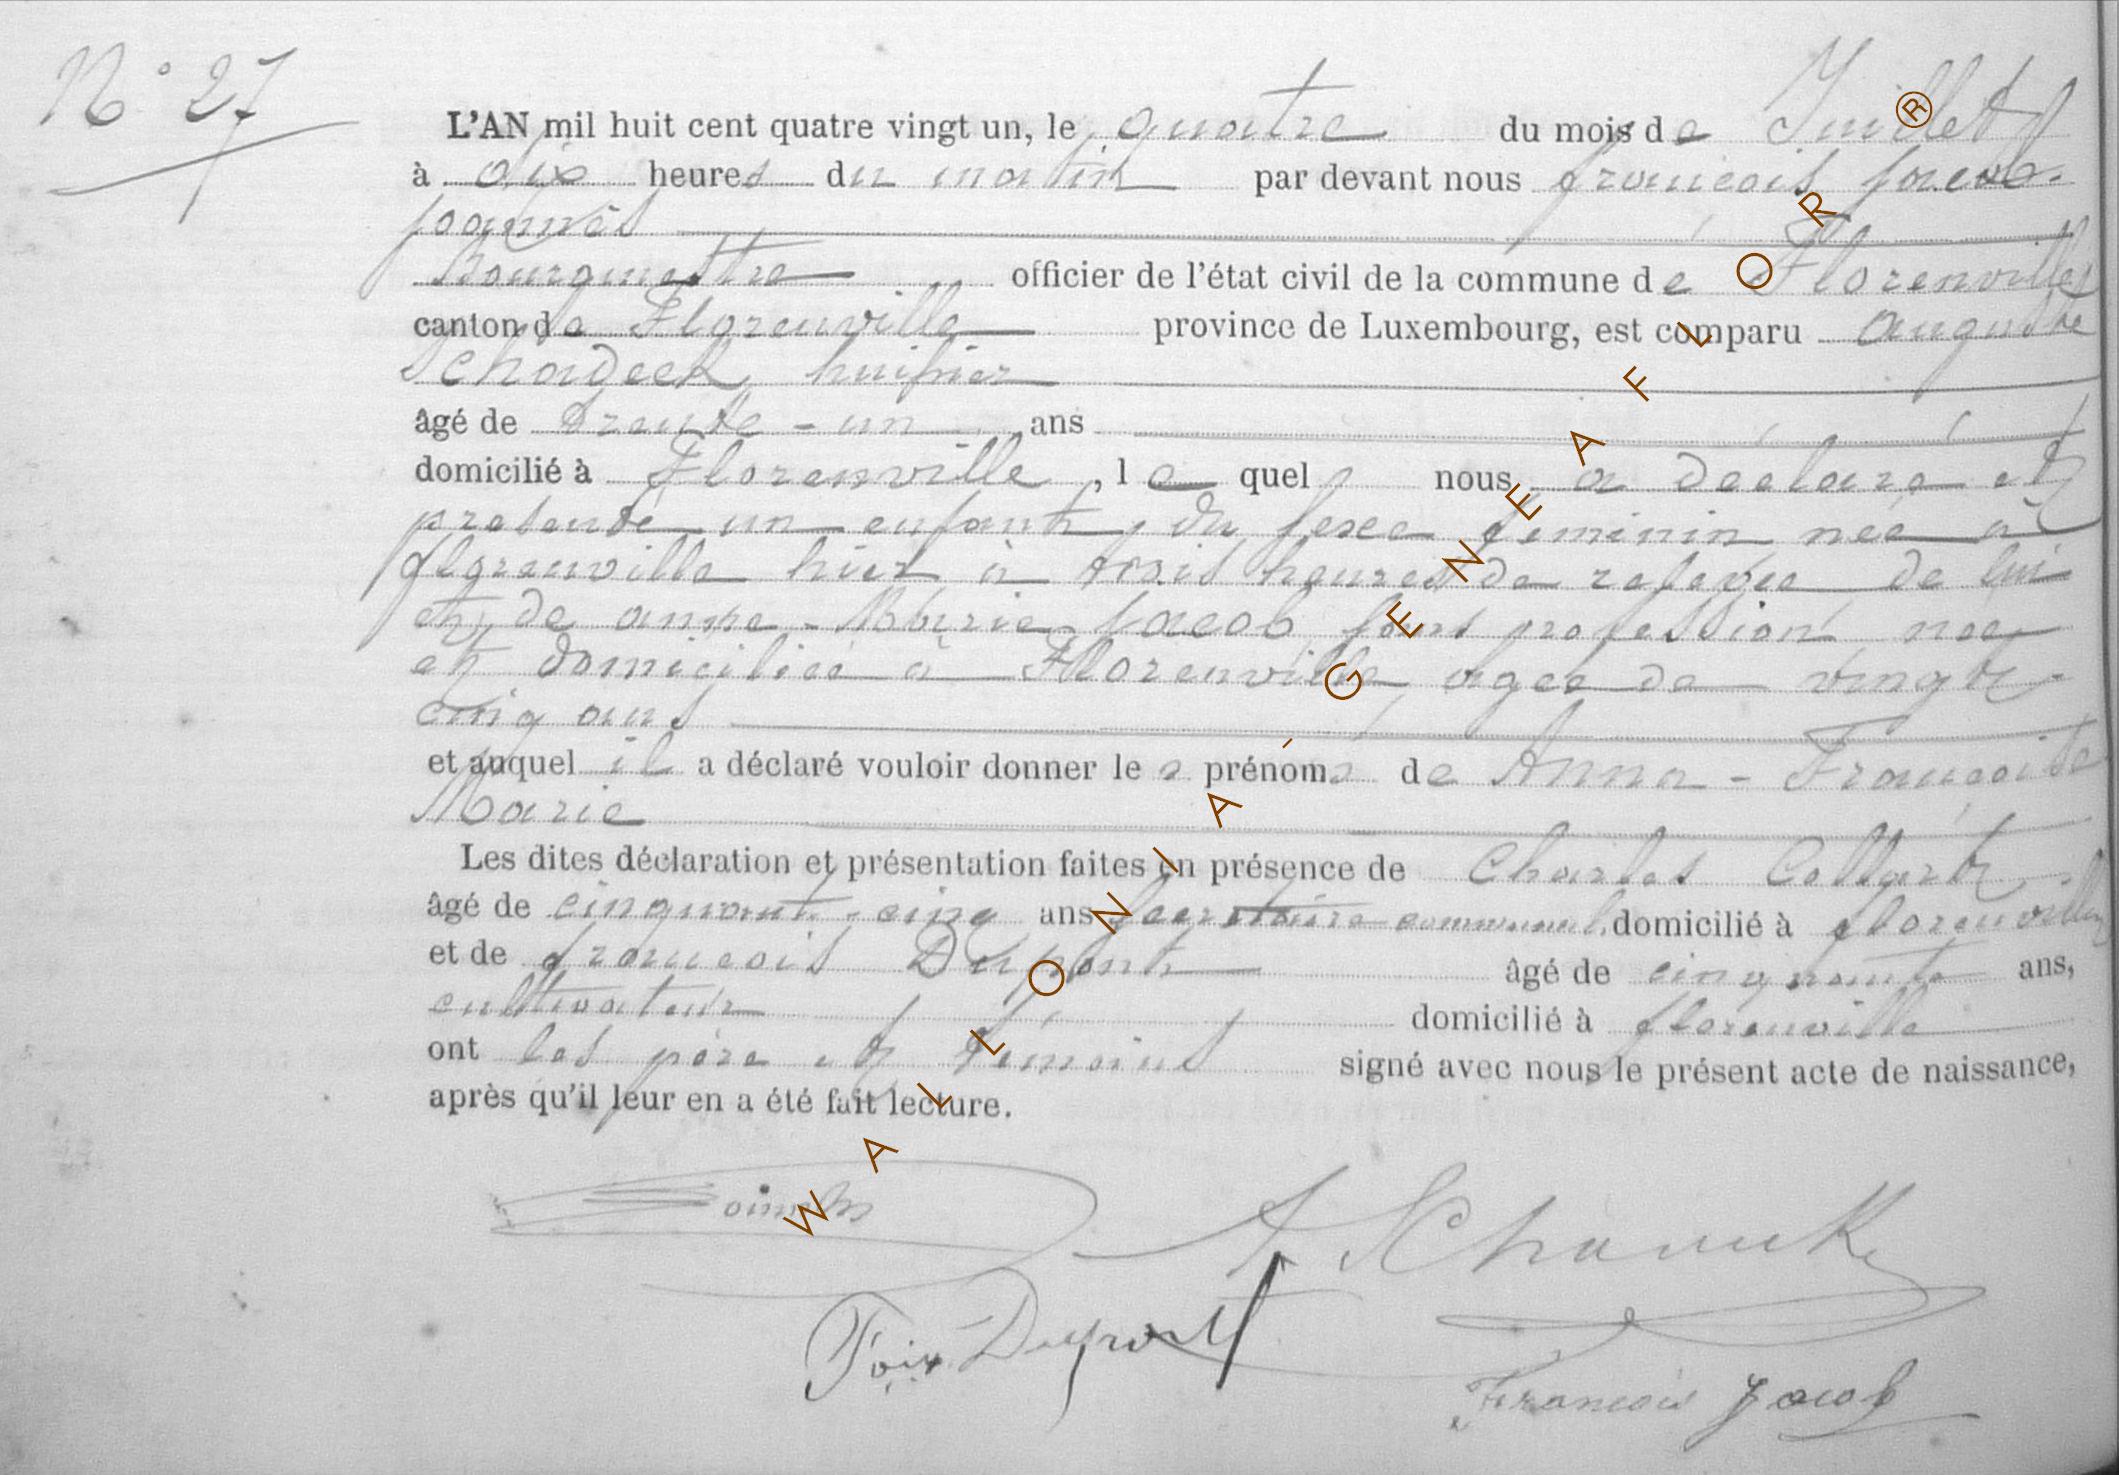 N° 27
L'AN mil huit cent quatre vingt un, le quatre du mois de Juillet
à dix heures du matin par devant nous françois jacob-
joannès
Bourgmestre officier de l'état civil de la commune de Florenville
canton de Florenville province de Luxembourg, est comparu auguste
Schadeck, huissier
âgé de trente-un ans
domicilié à Florenville, lequel nous a déclaré et
présenté un enfant du sexe féminin née à
florenville hier à trois heures de relevée de lui
et de anne-Marie jacob sans profession née
et domiciliée à Florenville, agée de vingt-
cinq ans
et auquel il a déclaré vouloir donner les prénoms de Anna-Françoise
Marie
Les dites déclaration et présentation faites en présence de Charles Collart
âgé de cinquante-cinq ans secrétaire communal, domicilié à florenville
et de françois Dupont âgé de cinquante ans,
cultivateur domicilié à florenville
ont les père et témoins signé avec nous le présent acte de naissance,
après qu'il leur en a été fait lecture.
A Schadeck
Fçois Dupont
François Jacob
WALLONIA GENEAFLOR ®